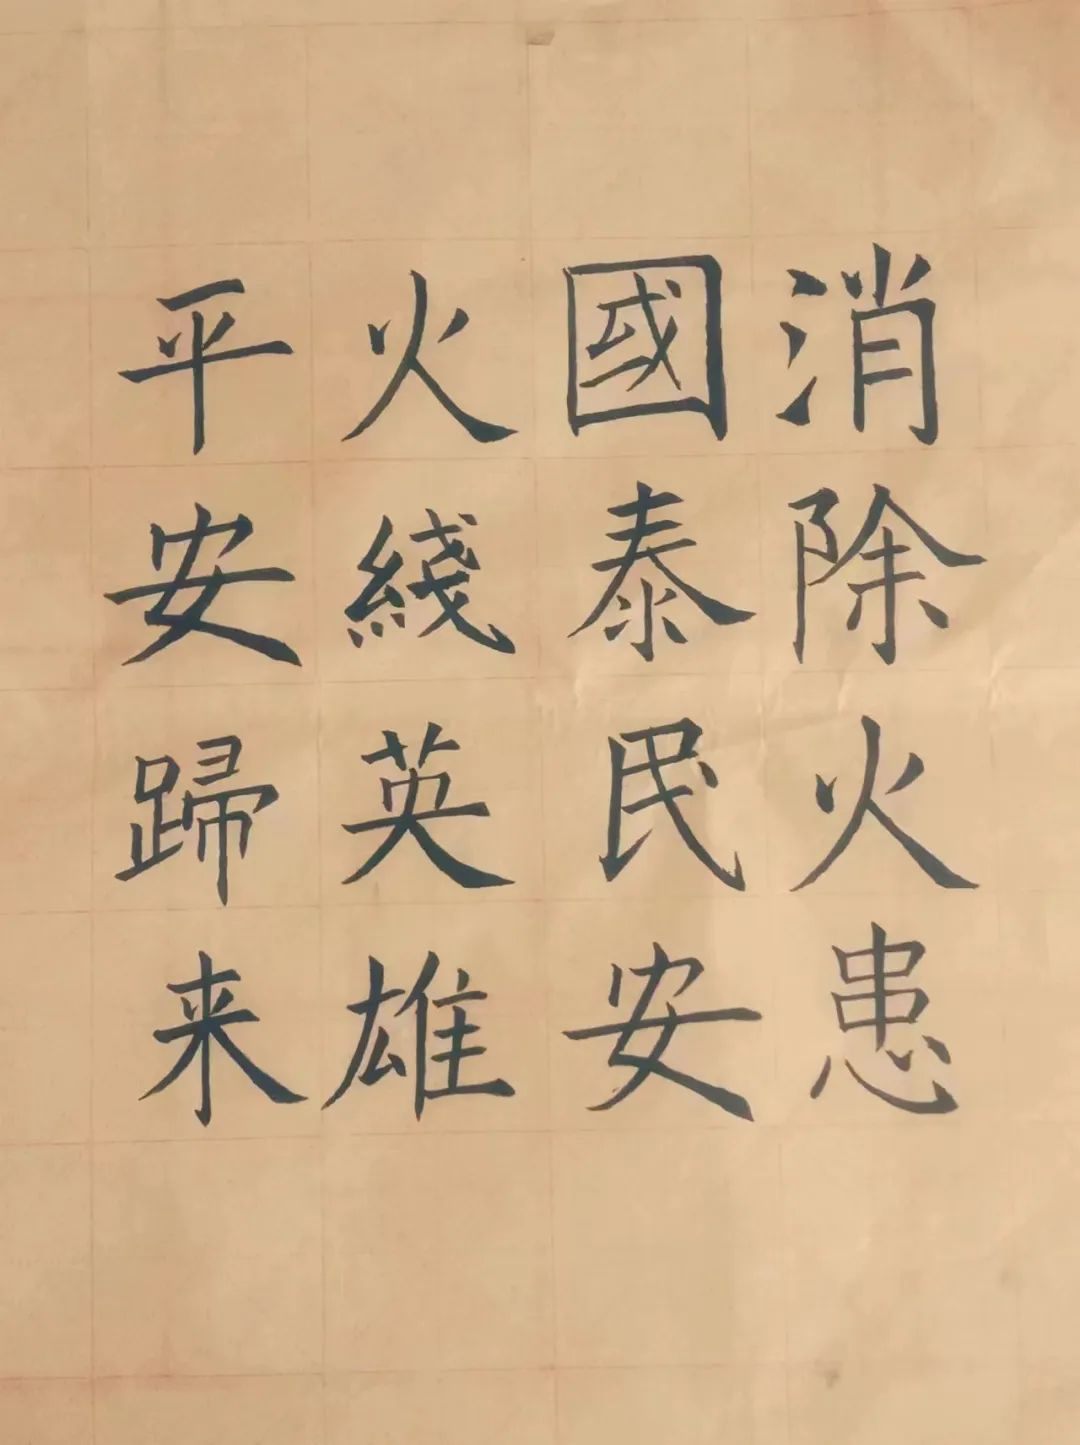 消除火患
國泰民安
火綫英雄
平安歸来